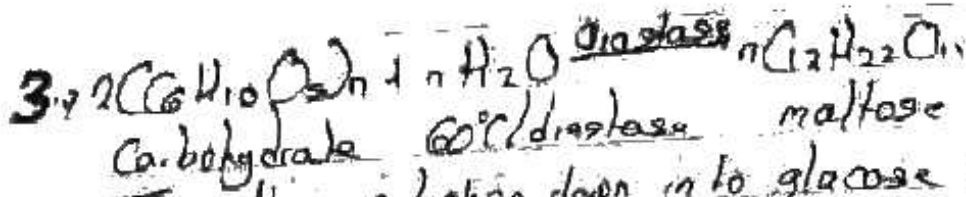 3., 2(C6H10O5)n + nH2O Diastase nC12H22O11
Carbohydrate 60°C/diastase maltose
down in to glucose